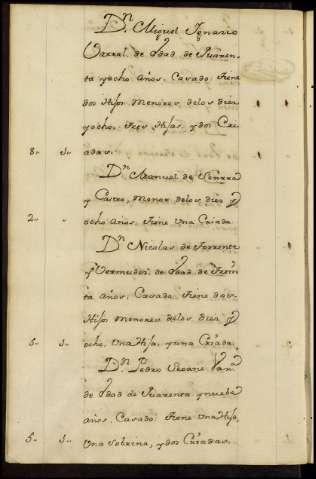 Dn. Miguel Ignacio
de Edad de Quaren-
ta y ocho años. Casado. tiene
dos Hijos Menores delos diez
y ocho, tres Hijas, y dos Cri-
8. - S. - adas.
Dn. Manuel de
y Castro, Menor delos diez y
2. - ocho años, tiene Una Criada
Dn. Nicolas de Torrente
y Vermudes. de Edad de Trein
ta años, Casado, tiene dos
Hijos menores delos diez y
5. - S. - ocho, Una Hija, y una Criada,
Dn. Pedro Seoane
de Edad de Quarenta y nuebe
años, Casado tiene una Hija,
5. - S. - Una Sobrina, y dos Criadas.